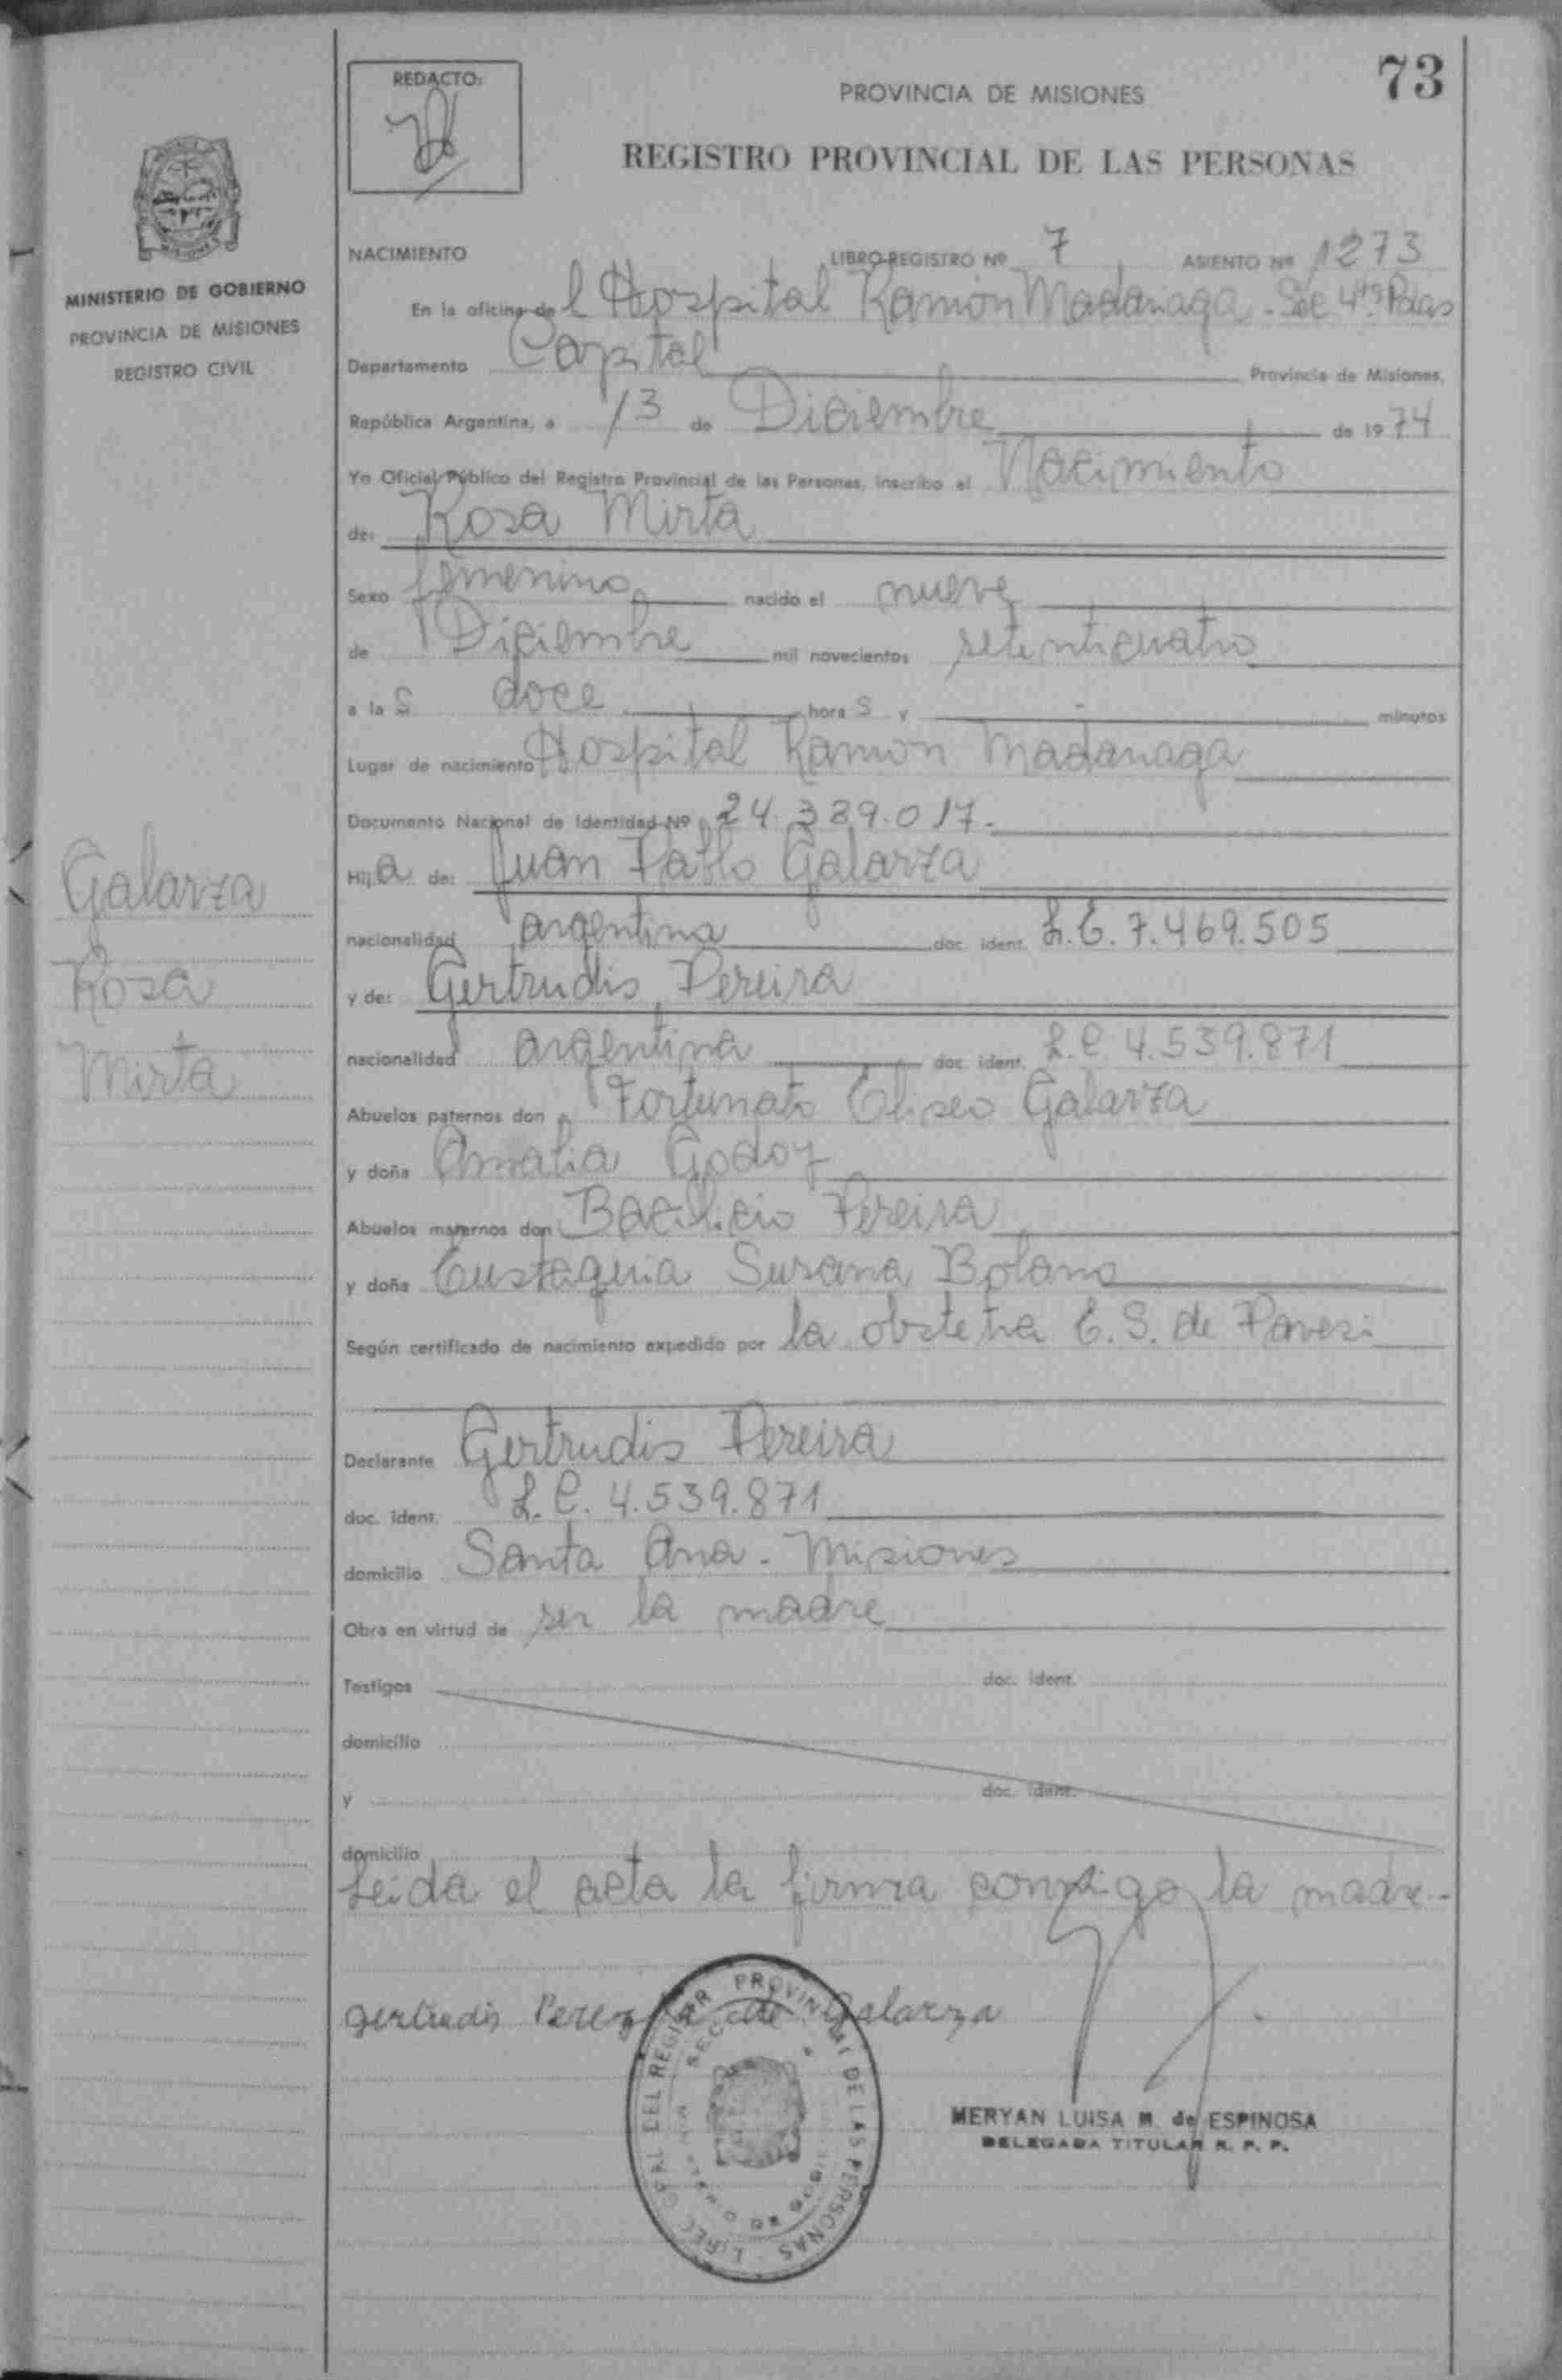 73
REDACTO:
PROVINCIA DE MISIONES
REGISTRO PROVINCIAL DE LAS PERSONAS
MINISTERIO DE GOBIERNO
PROVINCIA DE MISIONES
REGISTRO CIVIL
NACIMIENTO LIBRO-REGISTRO Nº 7 ASIENTO Nº 1273
En la oficina del Hospital Ramón Madariaga - Sec 4ta Pdas
Departamento Capital Provincia de Misiones,
República Argentina, a 13 de Diciembre de 1974
Yo Oficial Público del Registro Provincial de las Personas, inscribo el Nacimiento
de: Rosa Mirta
Sexo femenino nacido el nueve
de Diciembre mil novecientos setenticuatro
a las doce horas y - minutos
Lugar de nacimiento Hospital Ramón Madariaga
Documento Nacional de Identidad Nº 24.389.017.-
Hija de: Juan Pablo Galarza
nacionalidad argentina doc. ident. L.E. 7.469.505
y de: Gertrudis Pereira
nacionalidad argentina doc. ident. L.C. 4.539.871
Abuelos paternos don Fortunato Eliseo Galarza
y doña Amalia Godoy
Abuelos maternos don Bacilicio Pereira
y doña Eustaquia Susana Bolano
Según certificado de nacimiento expedido por la obstetra E. S. de Pavesi
Declarante Gertrudis Pereira
doc. ident. L.C. 4.539.871
domicilio Santa Ana - Misiones
Obra en virtud de ser la madre
Testigos doc. ident.
domicilio
y doc. ident.
domicilio
Leida el acta la firma conmigo la madre.-
Gertrudis Pereyra de Galarza
MERYAN LUISA M. de ESPINOSA
DELEGADA TITULAR R. P. P.
PROVINCIAL DE LAS PERSONAS
Galarza
Rosa
Mirta